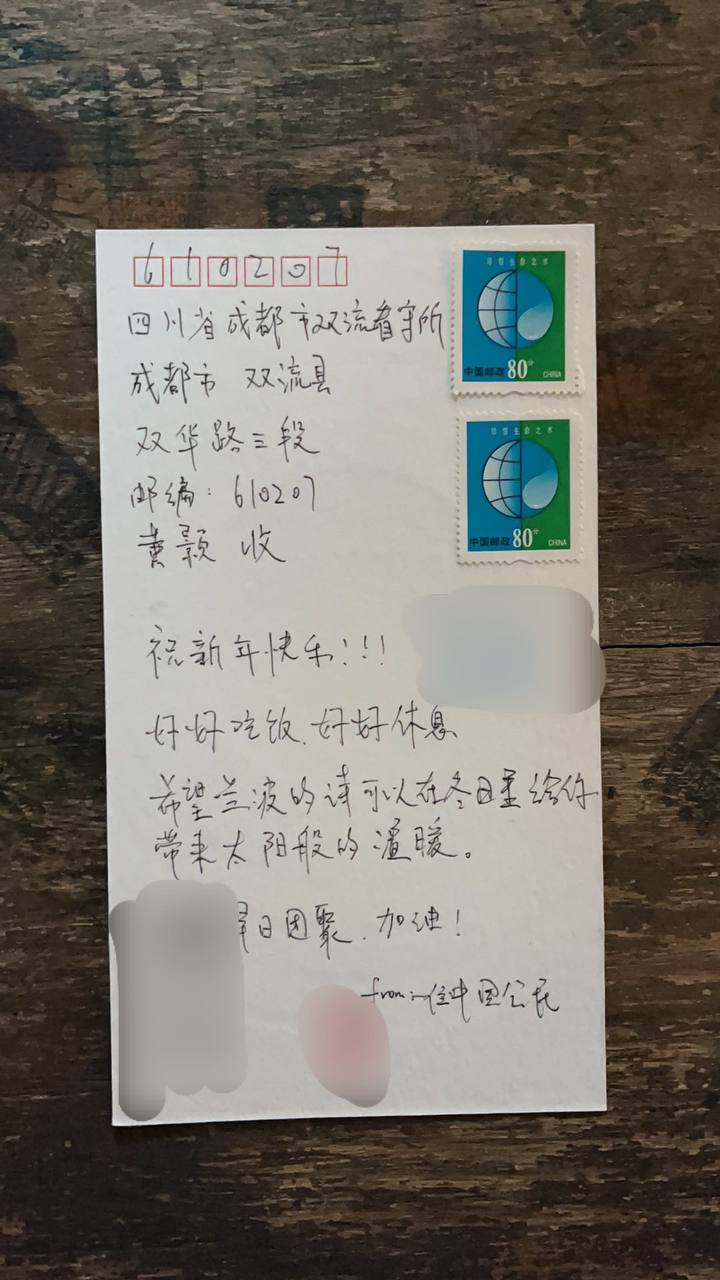 610207
四川省成都市双流看守所
成都市 双流县
双华路三段
邮编: 610207
黄颢 收
珍惜生命之水
中国邮政 80分 CHINA
珍惜生命之水
中国邮政 80分 CHINA
祝新年快乐!!!
好好吃饭、好好休息
希望兰波的诗可以在冬日里给你
带来太阳般的温暖。
早日团聚、加油!
from: 一位中国公民